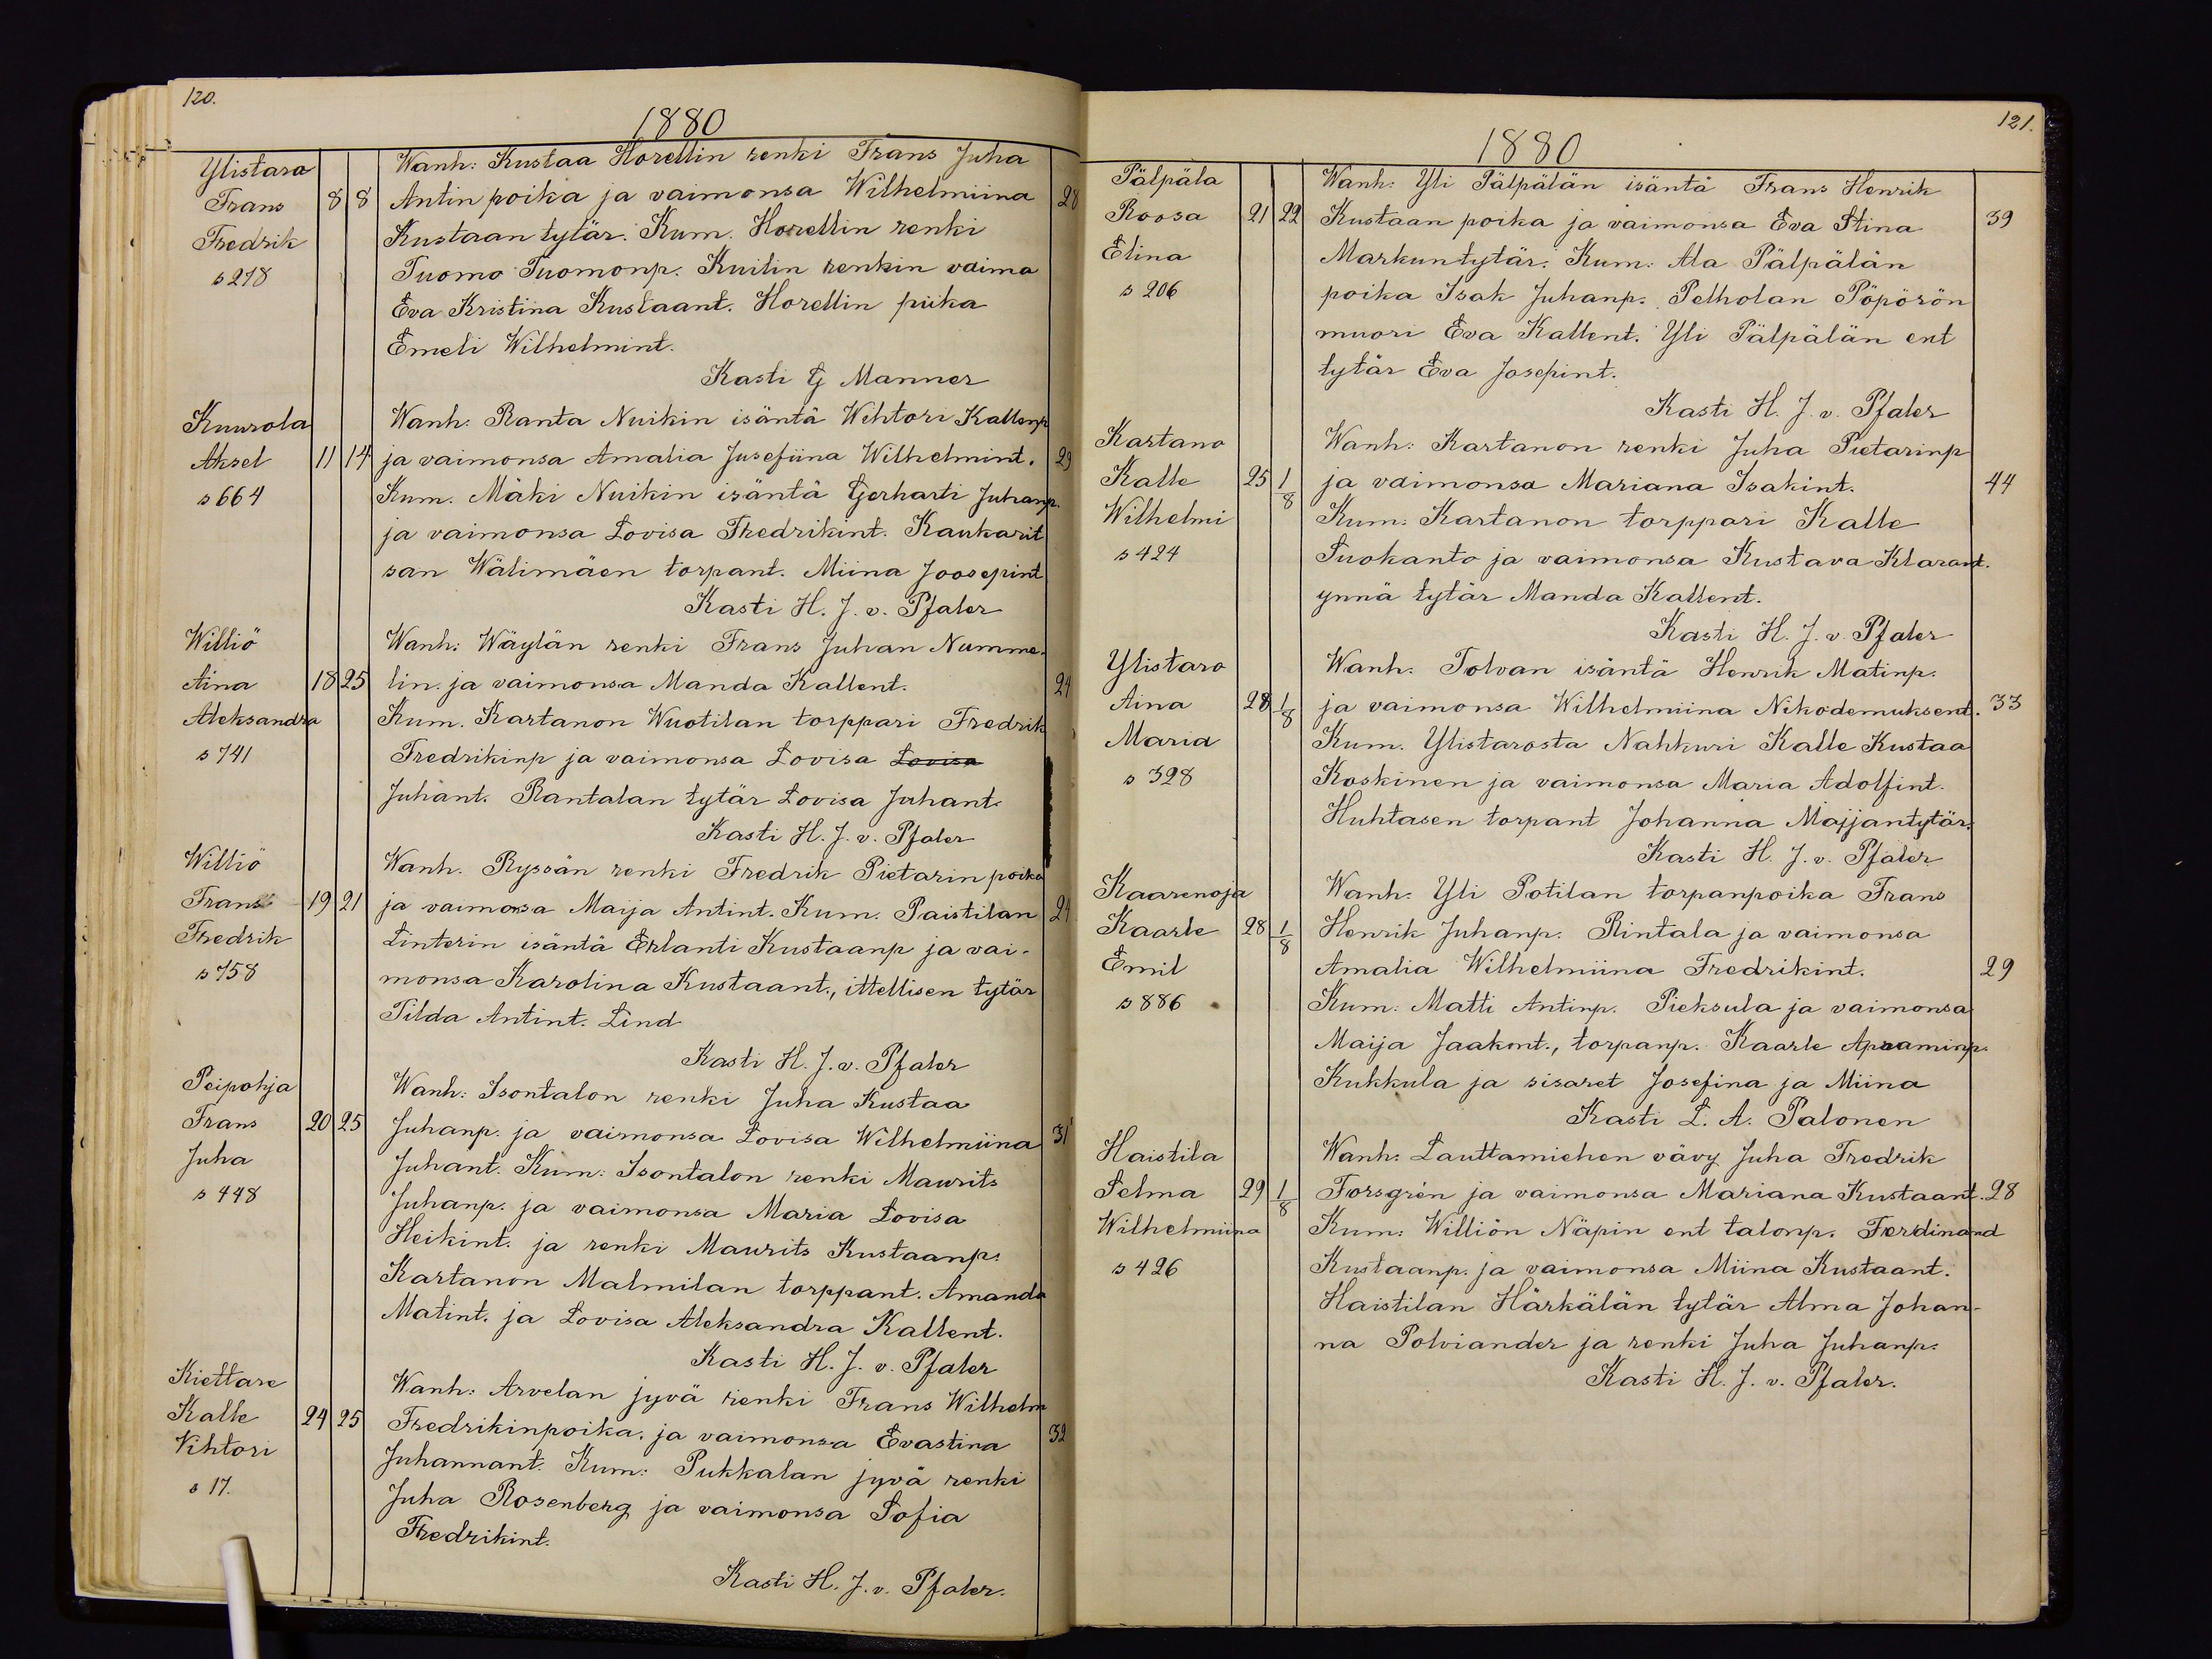 120.
1880
Ylistara Wanh: Kustaa Horellin renki Frans Juha
Frans 8 8 Antin poika ja vaimonsa Wilhelmiina 28
Fredrik Kustaan tytär. Kum. Horellin renki
s 278 Tuomo Tuomonp. Kuilin renkin vaimo
Eva Kristiina Kustaant. Horellin piika
Emeli Wilhelmint.
Kasti G Manner
Kuurola Wanh: Ranta Nuikin isäntä Wihtori Kallenp
Aksel 11 14 ja vaimonsa Amalia Jusefiina Wilhelmint. 29
s 664 Kum. Mäki Nuikin isäntä Gerharti Juhanp.
ja vaimonsa Lovisa Fredrikint. Kaukarit
san Wälimäen torpant. Miina Joosepint
Kasti H. J. v. Pfaler
Williö Wanh: Wäylän renki Frans Juhan Numme-
Aina 18 25 lin. ja vaimonsa Manda Kallent. 24
Aleksandra Kum. Kartanon Wuotilan torppari Fredrik
s 741 Fredrikinp ja vaimonsa Lovisa Lovisa
Juhant. Rantalan tytär Lovisa Juhant.
Kasti H. J. v. Pfaler
Williö Wanh. Ryssän renki Fredrik Pietarin poika
Frans 19 21 ja vaimonsa Maija Antint. Kum. Paistilan 24
Fredrik Linterin isäntä Erlanti Kustaanp ja vai-
s 758 monsa Karolina Kustaant., ittellisen tytär
Tilda Antint. Lind
Kasti H. J. v. Pfaler
Peipohja Wanh: Isontalon renki Juha Kustaa
Frans 20 25 Juhanp. ja vaimonsa Lovisa Wilhelmiina 31
Juha Juhant. Kum: Isontalon renki Maurits
s 448 Juhanp. ja vaimonsa Maria Lovisa
Heikint. ja renki Maurits Kustaanp.
Kartanon Malmilan torppant. Amanda
Matint. ja Lovisa Aleksandra Kallent.
Kasti H. J. v. Pfaler
Kiettare Wanh: Arvelan jyvä renki Frans Wilhelm
Kalle 24 25 Fredrikinpoika. ja vaimonsa Evastina 32
Vihtori Juhannant. Kum: Pukkalan jyvä renki
s 17. Juha Rosenberg ja vaimonsa Sofia
Fredrikint.
Kasti H. J. v. Pfaler.
121.
1880
Pälpäla Wanh: Yli Pälpälän isäntä Frans Henrik
Roosa 21 22 Kustaan poika ja vaimonsa Eva Stina 39
Elina Markuntytär. Kum: Ala Pälpälän
s 206 poika Isak Juhanp. Pelholan Pöpörön
muori Eva Kallent. Yli Pälpälän ent
tytär Eva Josepint.
Kasti H. J. v. Pfaler
Kartano Wanh: Kartanon renki Juha Pietarinp
Kalle 25 1/8 ja vaimonsa Mariana Isakint. 44
Wilhelmi Kum: Kartanon torppari Kalle
s 424 Suokanto ja vaimonsa Kustava Klarant.
ynnä tytär Manda Kallent.
Kasti H. J. v. Pfaler
Ylistaro Wanh. Tolvan isäntä Henrik Matinp.
Aina 28 1/8 ja vaimonsa Wilhelmiina Nikodemuksent. 33
Maria Kum. Ylistarosta Nahkuri Kalle Kustaa
s 328 Koskinen ja vaimonsa Maria Adolfint.
Huhtasen torpant Johanna Maijantytär.
Kasti H. J. v. Pfaler
Kaarenoja Wanh. Yli Potilan torpanpoika Frans
Kaarle 28 1/8 Henrik Juhanp. Rintala ja vaimonsa
Emil Amalia Wilhelmiina Fredrikint. 29
s 886 Kum: Matti Antinp. Pieksula ja vaimonsa
Maija Jaakont., torpanp. Kaarle Apraminp.
Kukkula ja sisaret Josefina ja Miina
Kasti L. A. Palonen
Haistila Wanh: Lauttamiehen vävy Juha Fredrik
Selma 29 1/8 Forsgrén ja vaimonsa Mariana Kustaant. 28
Wilhelmiina Kum: Williön Näpin ent talonp. Ferdinand
s 426 Kustaanp. ja vaimonsa Miina Kustaant.
Haistilan Härkälän tytär Alma Johan-
na Polviander ja renki Juha Juhanp.
Kasti H. J. v. Pfaler.